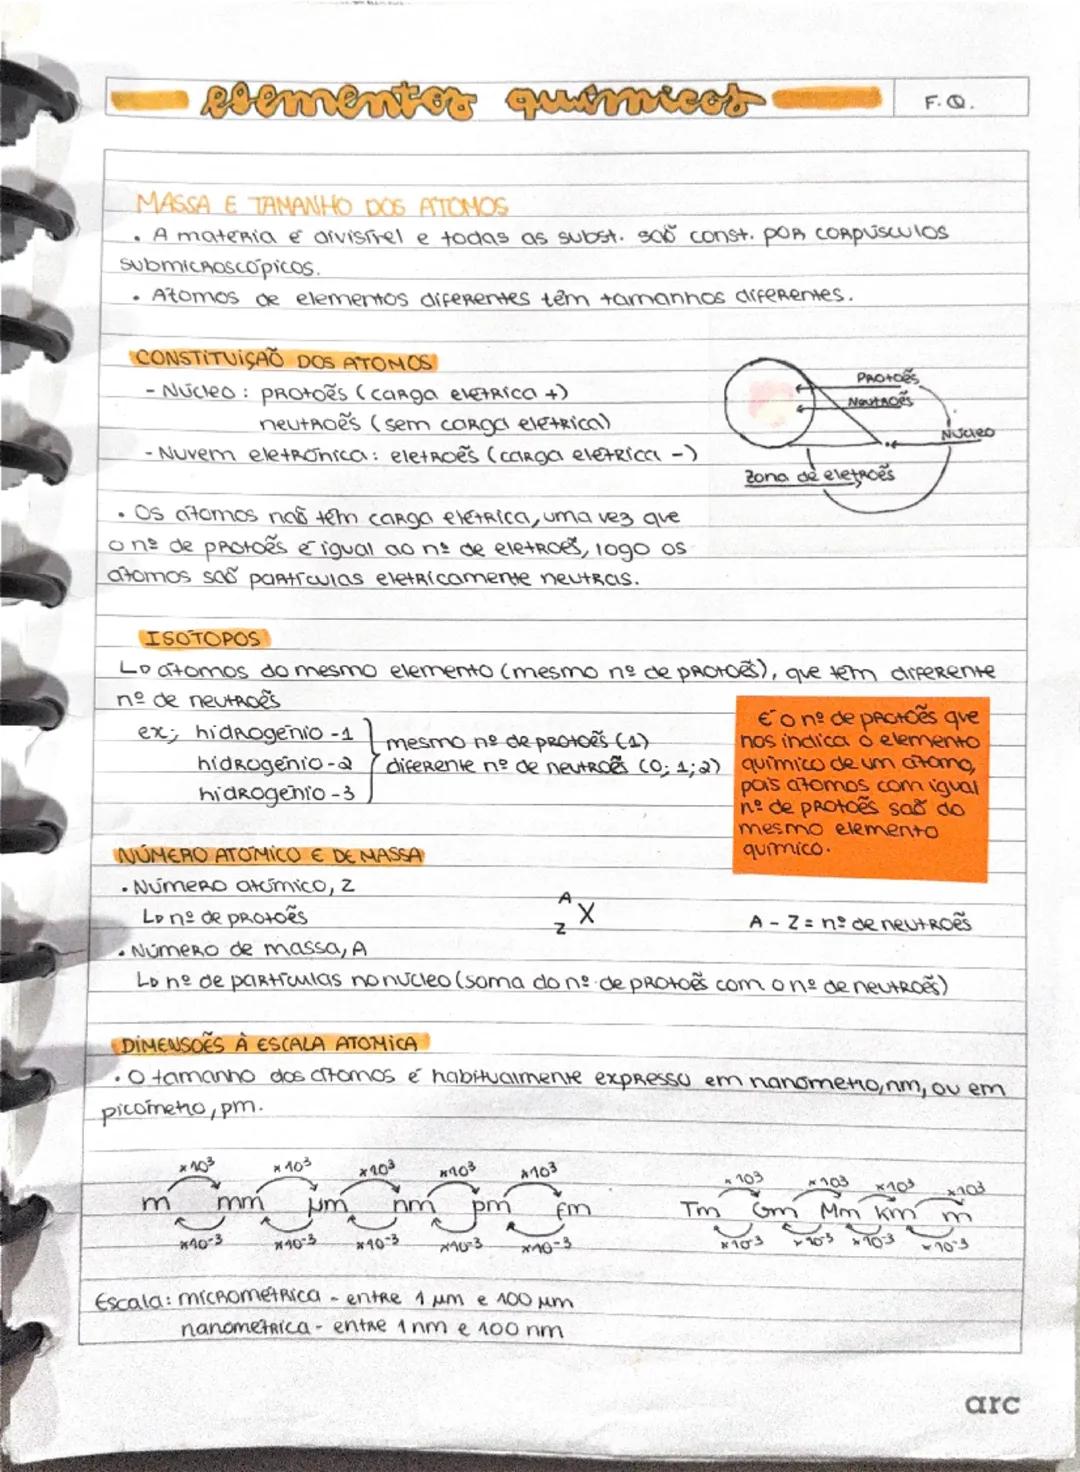 elementos químicos
F.Q.
MASSA E TAMANHO DOS ÁTOMOS
• A matéria é divisível e todas as subst. são const. por corpúsculos
submicroscópicos.
• Átomos de elementos diferentes têm tamanhos diferentes.
CONSTITUIÇÃO DOS ÁTOMOS
- Núcleo: protões (carga elétrica +)
neutrões (sem carga elétrica)
- Nuvem eletrónica: eletrões (carga elétrica -)
Protões
Neutrões
Núcleo
Zona de eletrões
• Os átomos não têm carga elétrica, uma vez que
o nº de protões é igual ao nº de eletrões, logo os
átomos são partículas eletricamente neutras.
ISÓTOPOS
↳ átomos do mesmo elemento (mesmo nº de protões), que têm diferente
nº de neutrões
ex; hidrogénio -1
hidrogénio -2
hidrogénio -3
mesmo nº de protões (1)
diferente nº de neutrões (0; 1; 2)
É o nº de protões que
nos indica o elemento
químico de um átomo,
pois átomos com igual
nº de protões são do
mesmo elemento
químico.
NÚMERO ATÓMICO E DE MASSA
• Número atómico, Z
↳ nº de protões
• Número de massa, A
↳ nº de partículas no núcleo (soma do nº de protões com o nº de neutrões)
A
Z X
A - Z = nº de neutrões
DIMENSÕES À ESCALA ATÓMICA
• O tamanho dos átomos é habitualmente expresso em nanómetro, nm, ou em
picómetro, pm.
×10³ ×10³ ×10³ ×10³ ×10³
m mm µm nm pm fm
×10-³ ×10-³ ×10-³ ×10-³ ×10-³
×10³ ×10³ ×10³ ×10³
Tm Gm Mm Km m
×10-³ ×10-³ ×10-³ ×10-³
Escala: micrométrica - entre 1 µm e 100 µm
nanométrica - entre 1 nm e 100 nm
arc